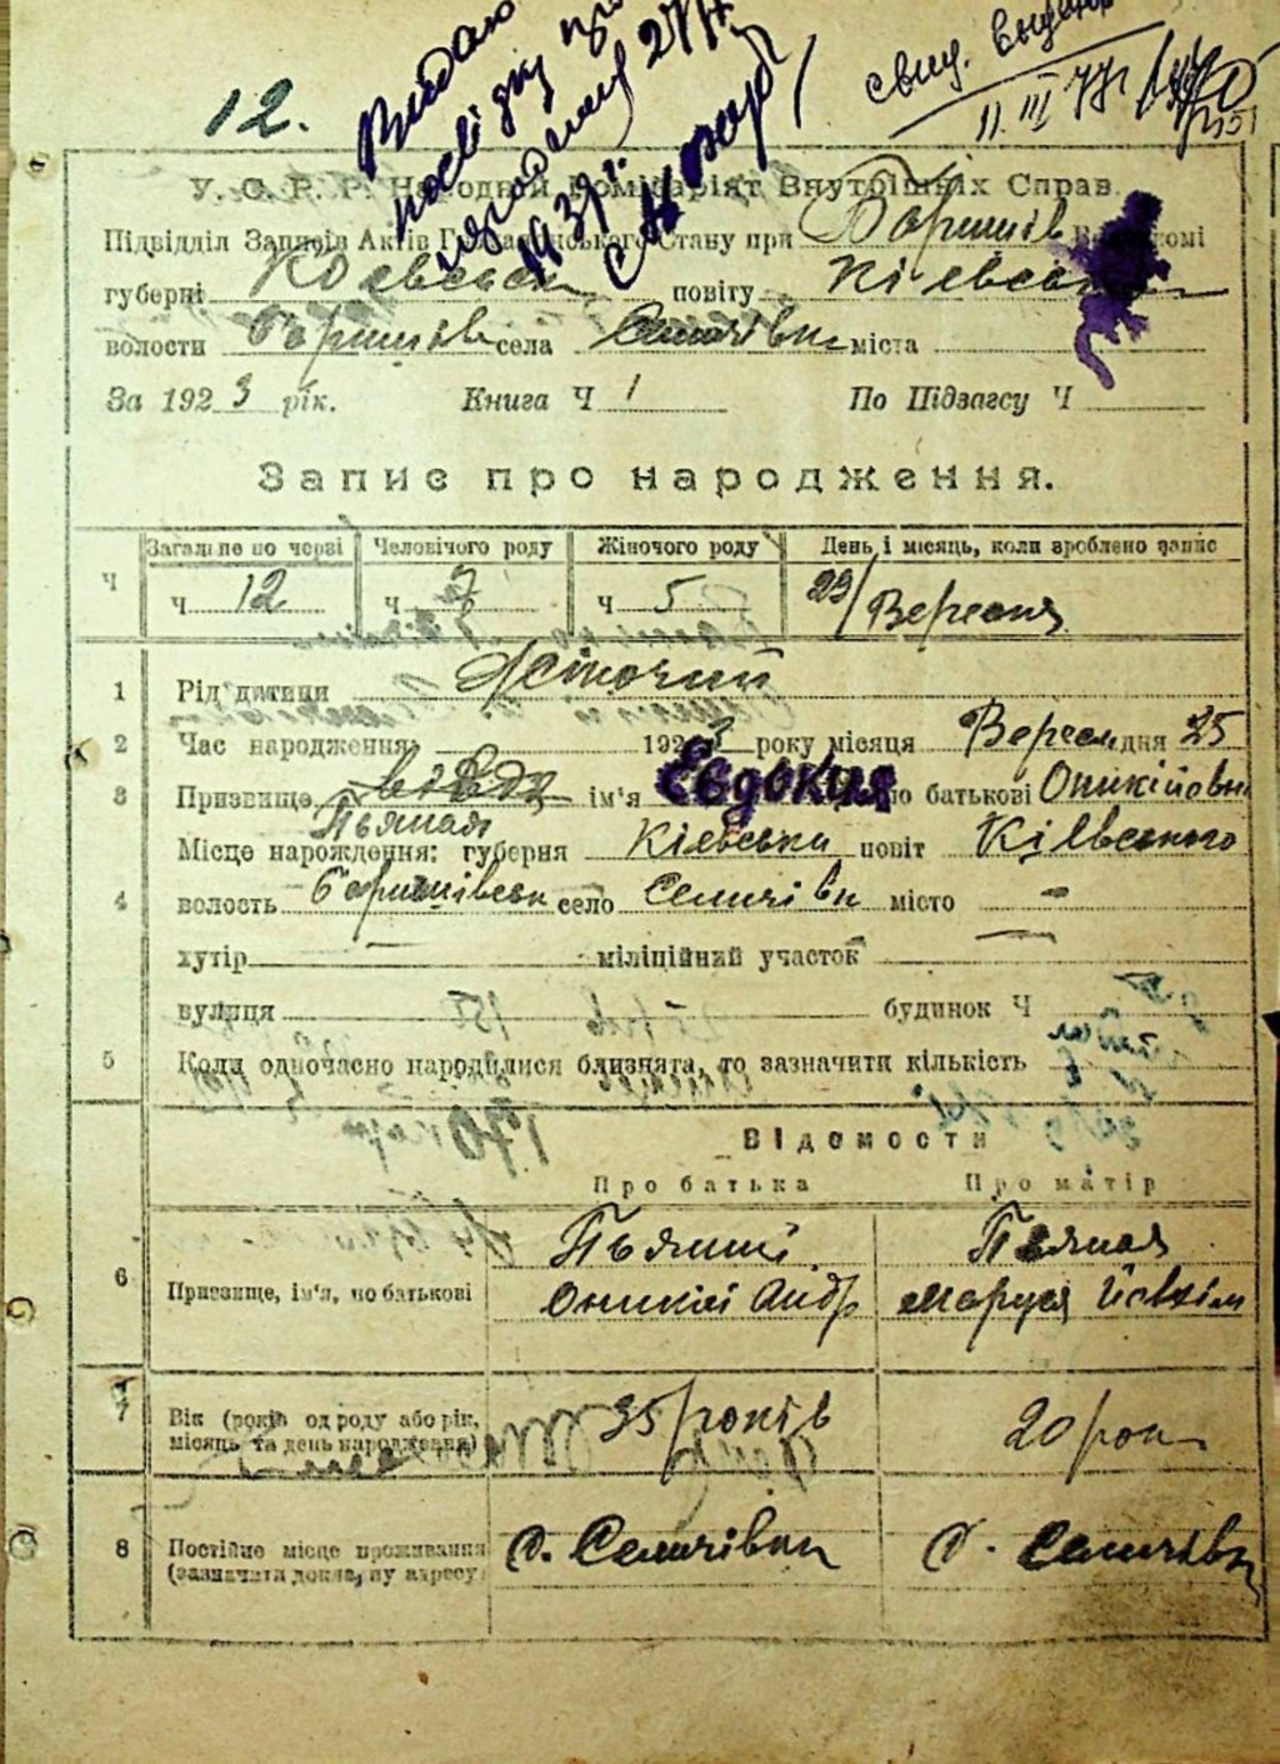 12.
Видано
посвідку про
народження 27/IX
1939 г.
свид. выдано
11 III 77г
У. С. Р. Р. Народній Комісаріят Внутрішніх Справ.
Підвідділ Записів Актів Громадянського Стану при Баришів
губерні Київськ повіту Київськ
волости Баришів села Селичівки міста
За 1923 рік. Книга Ч 1 По Підзагсу Ч
Запис про народження.
Загальне по черзі Человічого роду Жіночого роду День і місяць, коли зроблено запис
Ч ч 12 ч 7 ч 5 29/Вересня
1 Рід дитини Жіночий
2 Час народження: 1923 року місяця Вересн дня 25
3 Призвище ім'я Евдокия по батькові Оникійовн
Пьяная
Місце народження: губерня Київськи повіт Київського
4 волость Баришівськ село Селичівки місто -
хутір — міліційний участок —
вулиця будинок Ч
5 Коли одночасно народилися близнята, то зазначити кількість
Відомости
Про батька Про матір
Пьяний Пьяная
6 Призвище, ім'я, по батькові Оникій Андр Маруся Йовхім
7 Вік (років од роду або рік, 35/років 20/рок
місяць та день народження)
8 Постійне місце проживання с. Селичівки с. Селичівки
(зазначити докладну адресу)